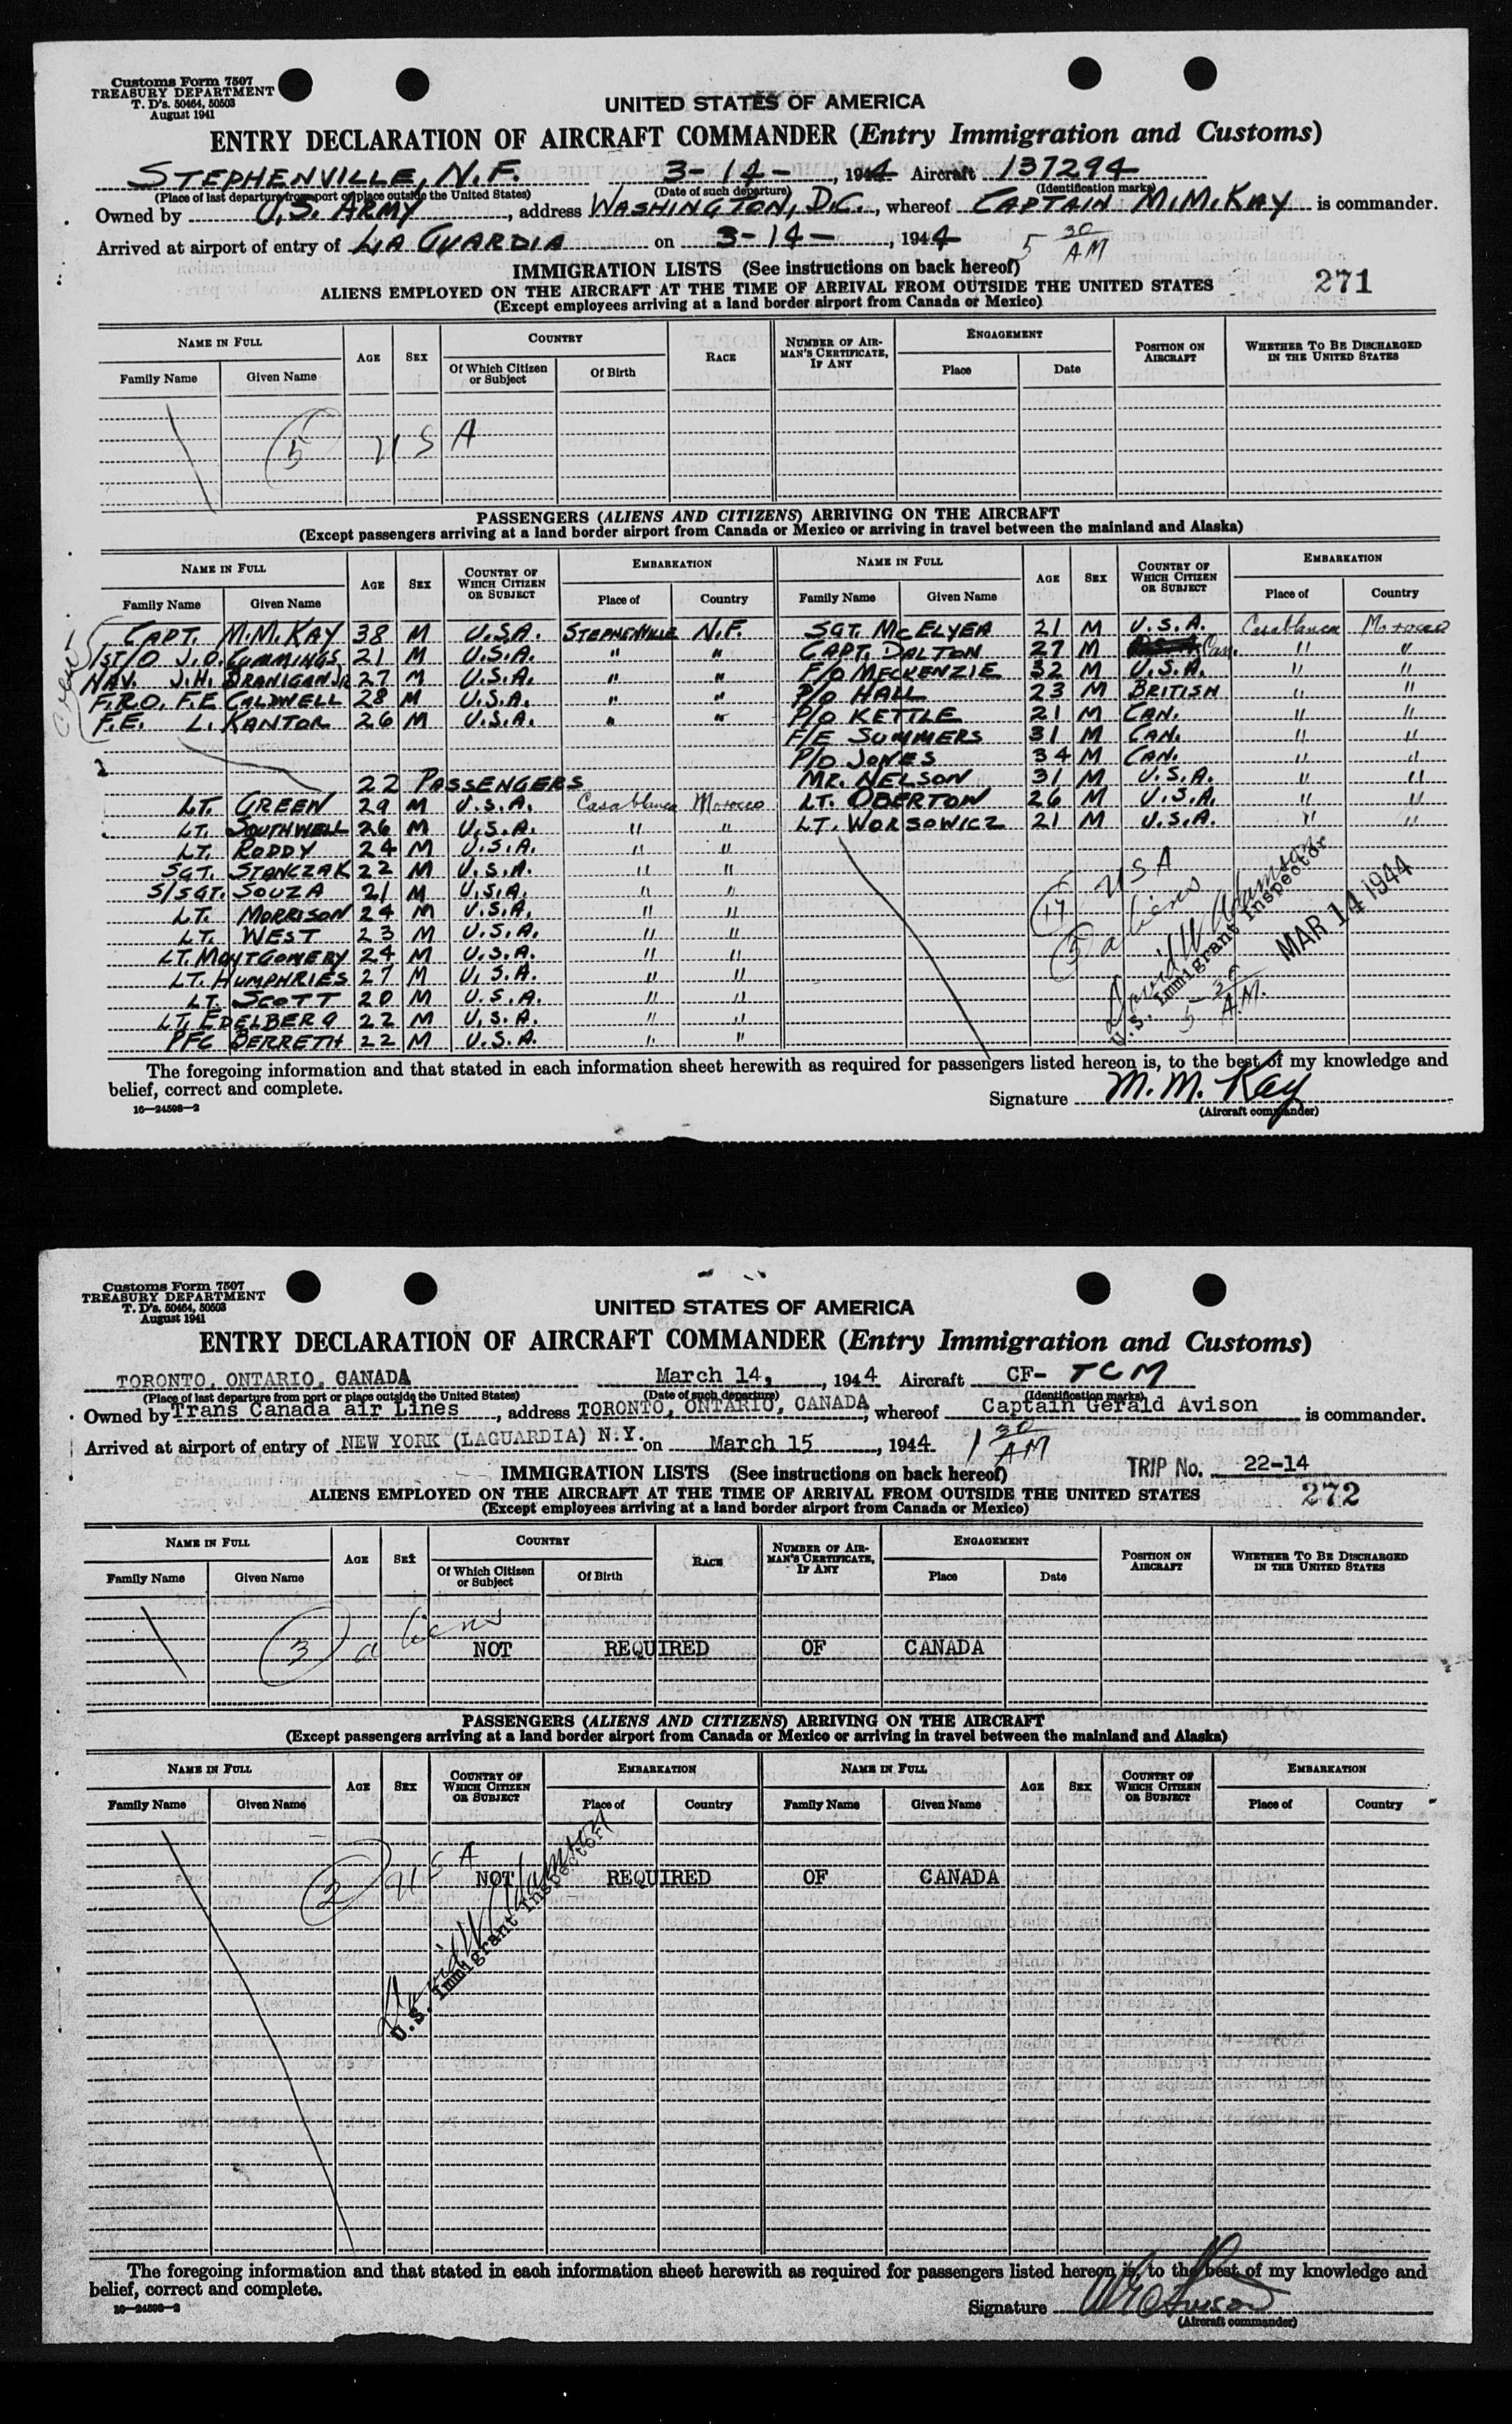 Customs Form 7507
TREASURY DEPARTMENT
T. D's. 50464, 50503
August 1941
UNITED STATES OF AMERICA
ENTRY DECLARATION OF AIRCRAFT COMMANDER (Entry Immigration and Customs)
STEPHENVILLE, N.F. 3-14-, 1944 Aircraft 137294
(Place of last departure from port or place outside the United States) (Date of such departure) (Identification marks)
Owned by U.S. ARMY, address WASHINGTON, D.C., whereof CAPTAIN M.M. KAY is commander.
Arrived at airport of entry of LA GUARDIA on 3-14-, 1944 5 30 AM
IMMIGRATION LISTS (See instructions on back hereof)
271
ALIENS EMPLOYED ON THE AIRCRAFT AT THE TIME OF ARRIVAL FROM OUTSIDE THE UNITED STATES
(Except employees arriving at a land border airport from Canada or Mexico)
NAME IN FULL AGE SEX COUNTRY RACE NUMBER OF AIRMAN'S CERTIFICATE, IF ANY ENGAGEMENT POSITION ON AIRCRAFT WHETHER TO BE DISCHARGED IN THE UNITED STATES
Family Name Given Name Of Which Citizen or Subject Of Birth Place Date
5 U S A
PASSENGERS (ALIENS AND CITIZENS) ARRIVING ON THE AIRCRAFT
(Except passengers arriving at a land border airport from Canada or Mexico or arriving in travel between the mainland and Alaska)
NAME IN FULL AGE SEX COUNTRY OF WHICH CITIZEN OR SUBJECT EMBARKATION NAME IN FULL AGE SEX COUNTRY OF WHICH CITIZEN OR SUBJECT EMBARKATION
Family Name Given Name Place of Country Family Name Given Name Place of Country
Crew
CAPT. M.M. KAY 38 M U.S.A. STEPHENVILLE N.F. SGT. McELYEA 21 M U.S.A. Casablanca Morocco
1ST/O J.O. CUMMINGS 21 M U.S.A. " " CAPT. DALTON 27 M Can. " "
NAV. J.H. BRANIGAN JR 27 M U.S.A. " " F/O MECKENZIE 32 M U.S.A. " "
F.R.O. F.E CALDWELL 28 M U.S.A. " " P/O HALL 23 M BRITISH " "
F.E. L. KANTOR 26 M U.S.A. " " P/O KETTLE 21 M CAN. " "
F/E SUMMERS 31 M CAN. " "
P/O JONES 34 M CAN. " "
22 PASSENGERS MR. NELSON 31 M U.S.A. " "
LT. GREEN 29 M U.S.A. Casablanca Morocco LT. OBERTON 26 M U.S.A. " "
LT. SOUTHWELL 26 M U.S.A. " " LT. WORSOWICZ 21 M U.S.A. " "
LT. RODDY 24 M U.S.A. " "
SGT. STANCZAK 22 M U.S.A. " "
S/SGT. SOUZA 21 M U.S.A. " "
LT. MORRISON 24 M U.S.A. " "
LT. WEST 23 M U.S.A. " "
LT. MONTGOMERY 24 M U.S.A. " "
LT. HUMPHRIES 27 M U.S.A. " "
LT. SCOTT 20 M U.S.A. " "
LT. EDELBERG 22 M U.S.A. " "
PFC BERRETH 22 M U.S.A. " "
17 USA
5 aliens
U.S. Immigrant Inspector
MAR 14 1944
5 30 A.M.
The foregoing information and that stated in each information sheet herewith as required for passengers listed hereon is, to the best of my knowledge and
belief, correct and complete.
Signature M. M. Kay
(Aircraft commander)
16—24598—2
Customs Form 7507
TREASURY DEPARTMENT
T. D's. 50464, 50503
August 1941
UNITED STATES OF AMERICA
ENTRY DECLARATION OF AIRCRAFT COMMANDER (Entry Immigration and Customs)
TORONTO, ONTARIO, CANADA March 14, 1944 Aircraft CF- TCM
(Place of last departure from port or place outside the United States) (Date of such departure) (Identification marks)
Owned by Trans Canada air Lines, address TORONTO, ONTARIO, CANADA, whereof Captain Gerald Avison is commander.
Arrived at airport of entry of NEW YORK (LAGUARDIA) N.Y. on March 15, 1944. 1 30 AM
IMMIGRATION LISTS (See instructions on back hereof)
TRIP No. 22-14
272
ALIENS EMPLOYED ON THE AIRCRAFT AT THE TIME OF ARRIVAL FROM OUTSIDE THE UNITED STATES
(Except employees arriving at a land border airport from Canada or Mexico)
NAME IN FULL AGE SEX COUNTRY RACE NUMBER OF AIRMAN'S CERTIFICATE, IF ANY ENGAGEMENT POSITION ON AIRCRAFT WHETHER TO BE DISCHARGED IN THE UNITED STATES
Family Name Given Name Of Which Citizen or Subject Of Birth Place Date
3 aliens
NOT REQUIRED OF CANADA
PASSENGERS (ALIENS AND CITIZENS) ARRIVING ON THE AIRCRAFT
(Except passengers arriving at a land border airport from Canada or Mexico or arriving in travel between the mainland and Alaska)
NAME IN FULL AGE SEX COUNTRY OF WHICH CITIZEN OR SUBJECT EMBARKATION NAME IN FULL AGE SEX COUNTRY OF WHICH CITIZEN OR SUBJECT EMBARKATION
Family Name Given Name Place of Country Family Name Given Name Place of Country
2 USA
NOT REQUIRED OF CANADA
U.S. Immigrant Inspector
The foregoing information and that stated in each information sheet herewith as required for passengers listed hereon is, to the best of my knowledge and
belief, correct and complete.
Signature
(Aircraft commander)
16—24598—2